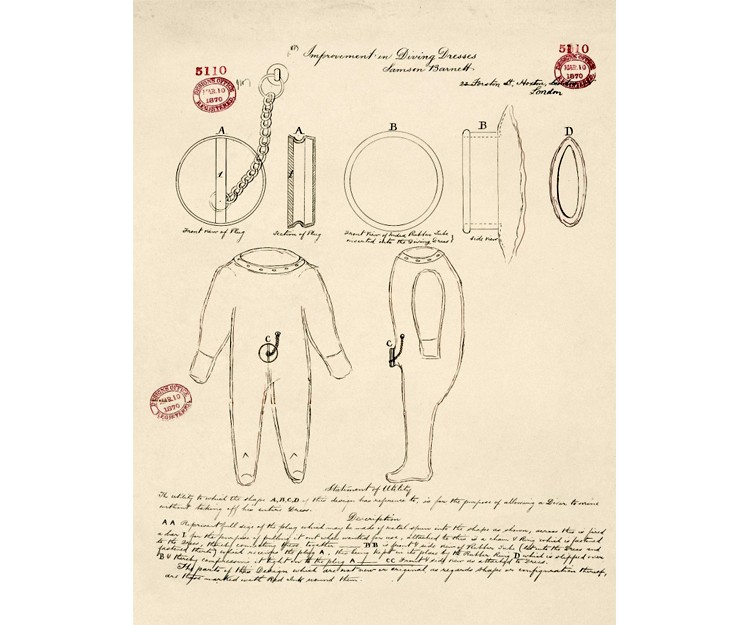 Improvement in Diving Dresses
Samson Barnett
5110
DESIGNS OFFICE
MAR.10
1870
REGISTERED
5110
DESIGNS OFFICE
MAR.10
1870
REGISTERED
22 Forston St, Hoxton, London
London
A
A
B
B
D
1
1
Front view of Plug
Section of Plug
Front View of Inded Rubber Tube
inserted into the Diving Dress
Side view
C
C
DESIGNS OFFICE
MAR.10
1870
REGISTERED
Statement of Utility
The utility to which the shape A,B,C,D of this design has reference to, is for the purpose of allowing a Diver to urine
without taking off his entire Dress.
Description
A A Represent full size of the plug which may be made of metal spun into the shape as shown, across this is fixed
a bar 1 for the purpose of pulling it out when wanted for use, attached to this is a chain & Ring which is fastened
to the Dress, thereby connecting them together B B is front & side view of Rubber Tube (let into the Dress and
fastened thereby) which receives the plug A, this being kept in its place by the Rubber Ring D which is slipped over
B & thereby compressing it tight on to the plug A CC Front & side view as attached to Dress.
The parts of this Design which are not new or original as regards shape or configuration thereof,
are those marked with Red Ink round them.